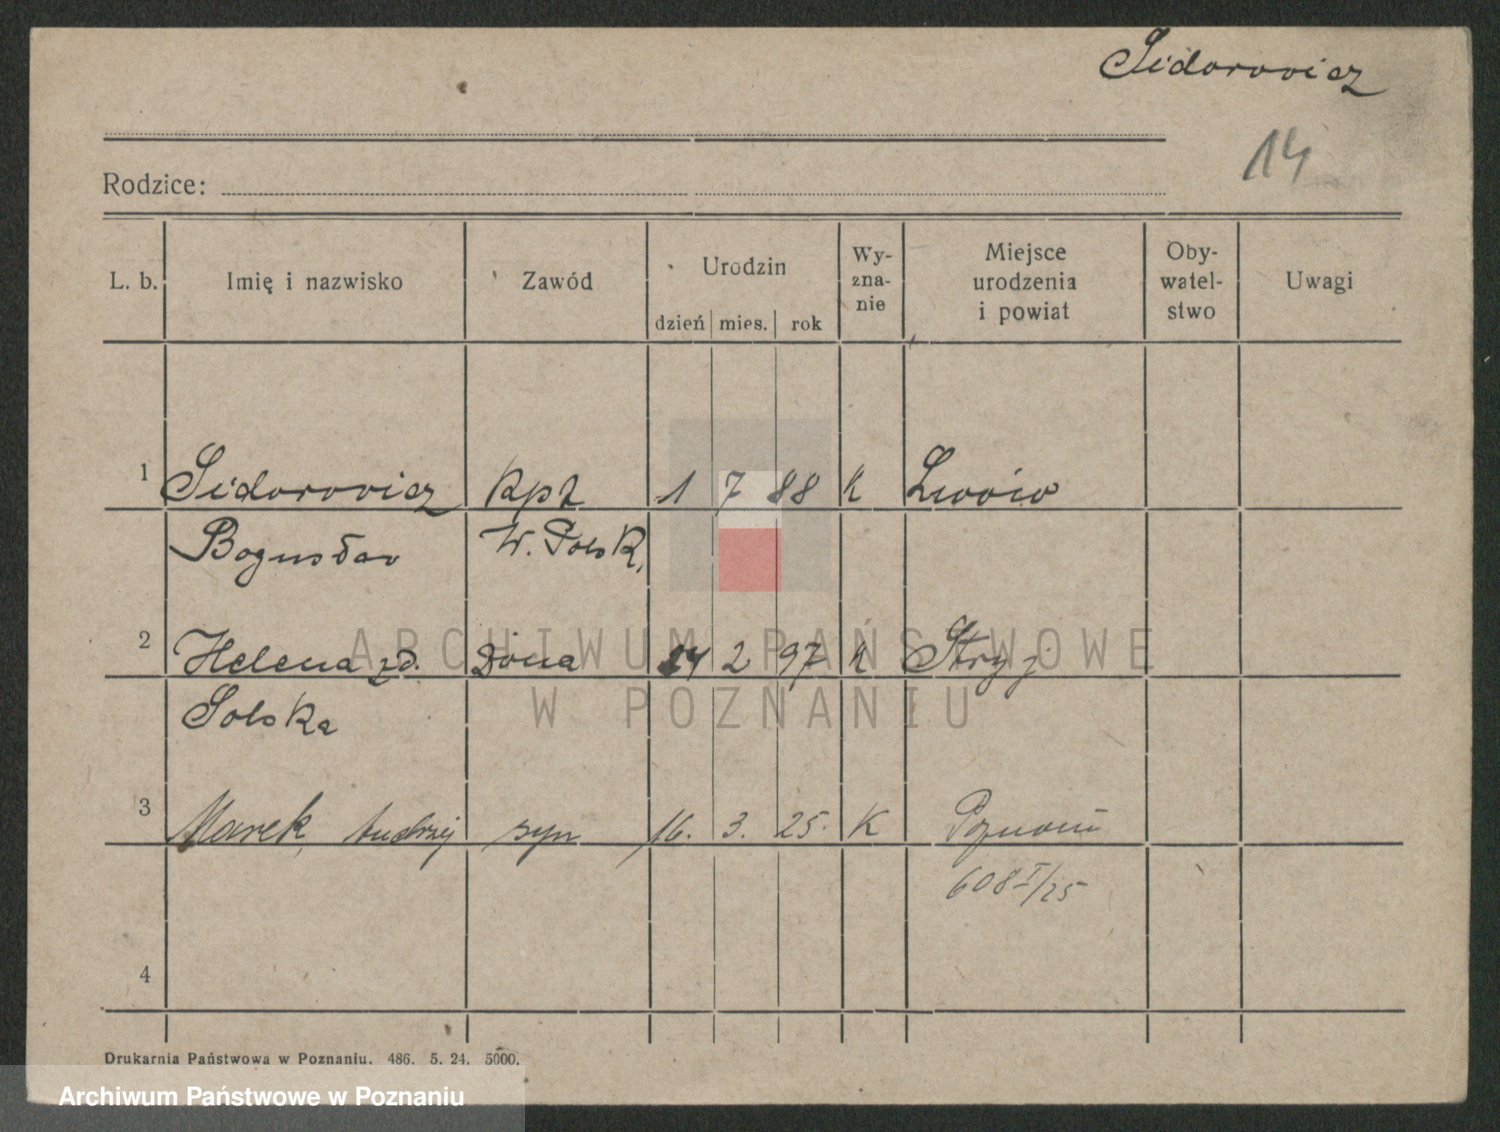 Sidorowicz
14
Rodzice:
L. b. Imię i nazwisko Zawód Urodzin Wy-zna-nie Miejsce urodzenia i powiat Oby-watel-stwo Uwagi
dzień mies. rok
1 Sidorowicz Kpt 1 7 88 K Lwów
Bogusław W. Polsk.
2 Helena zd. Dona 2 97 K Stryj
Solska
3 Marek, Andrzej syn 16. 3. 25. K Poznań
608 I/25
4
Drukarnia Państwowa w Poznaniu. 486. 5. 24. 5000.
ARCHIWUM PAŃSTWOWE
W POZNANIU
Archiwum Państwowe w Poznaniu